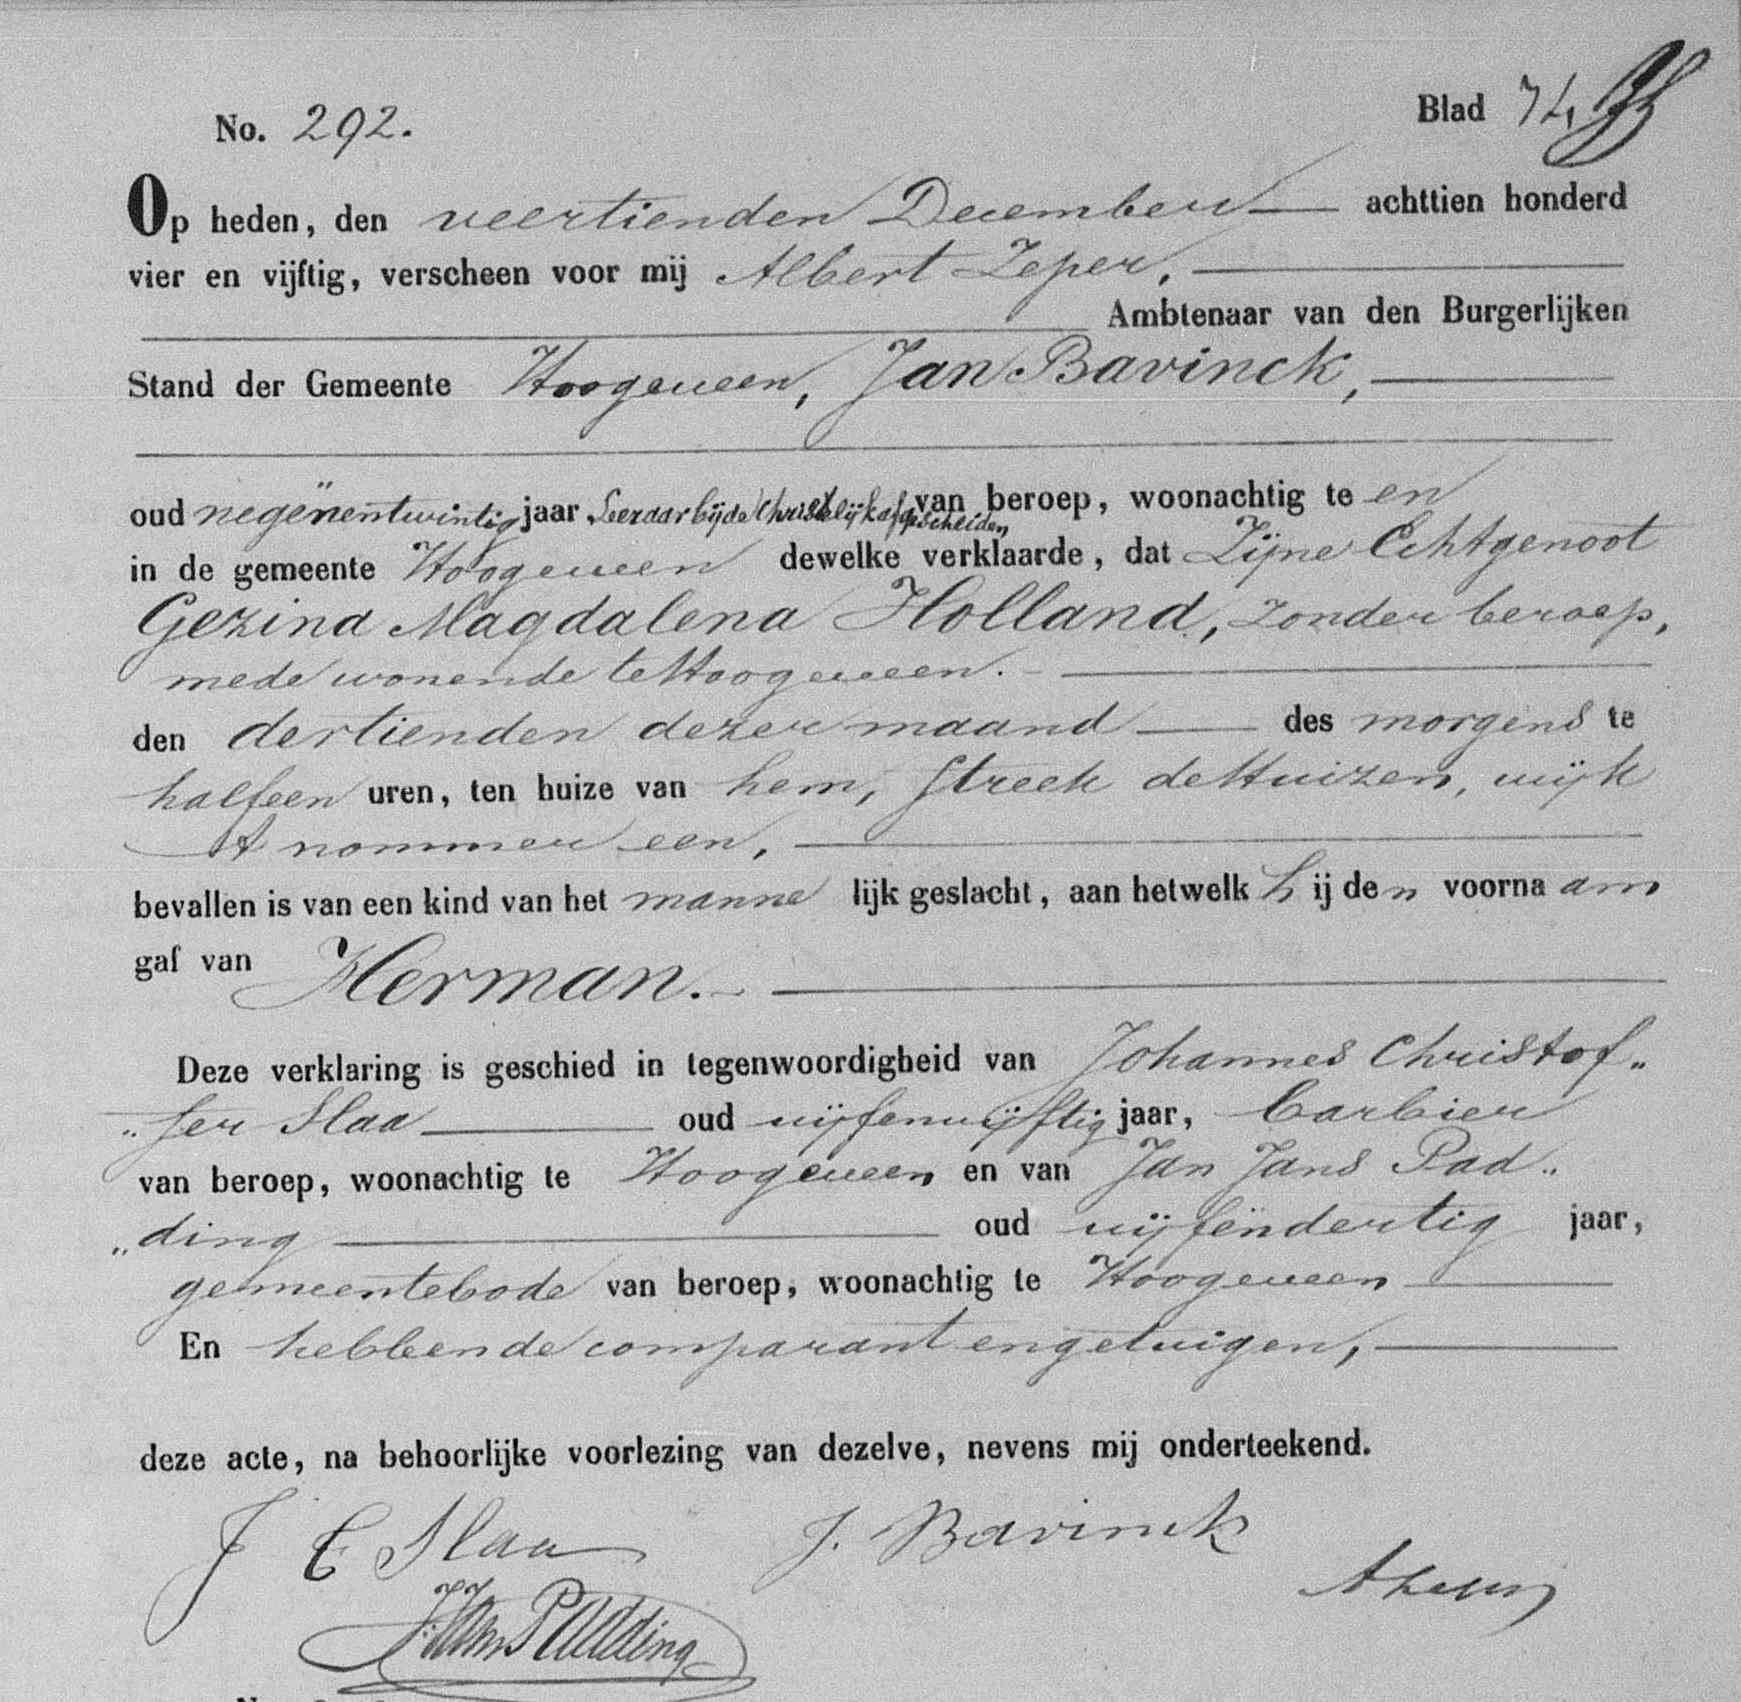 No. 292. Blad 74.
Op heden, den veertienden December achttien honderd
vier en vijftig, verscheen voor mij Albert Zeper,
Ambtenaar van den Burgerlijken
Stand der Gemeente Hoogeveen, Jan Bavinck,
oud negenëntwintig jaar Leeraar bij de Christelijk afgescheiden, van beroep, woonachtig te en
in de gemeente Hoogeveen dewelke verklaarde, dat Zijne Echtgenoot
Gezina Magdalena Holland, zonder beroep,
mede wonende te Hoogeveen.
den dertienden dezer maand des morgens te
half een uren, ten huize van hem, streek de Huizen, wijk
A nommer een,
bevallen is van een kind van het manne lijk geslacht, aan hetwelk h ij de n voorna am
gaf van Herman.
Deze verklaring is geschied in tegenwoordigheid van Johannes Christof„
„fer Slaa oud vijfenvijftig jaar, barbier
van beroep, woonachtig te Hoogeveen en van Jan Jans Pad„
„ding oud vijfëndertig jaar,
gemeentebode van beroep, woonachtig te Hoogeveen
En hebben de comparant en getuigen,
deze acte, na behoorlijke voorlezing van dezelve, nevens mij onderteekend.
J C Slaa J. Bavinck
AZeper
JJan Padding